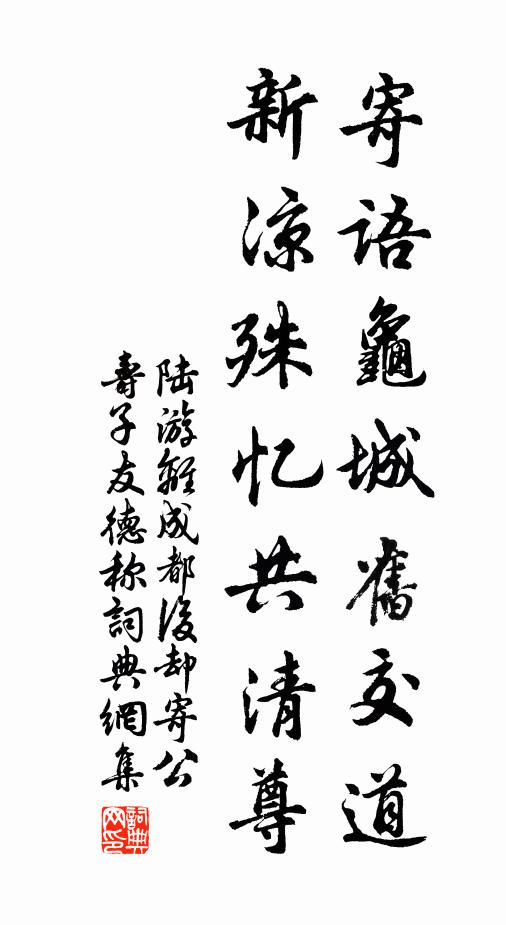 寄语龜城舊交道
新凉殊忆共清尊
陆游離成都後却寄公
壽子友德称詞典網集
詞典网印